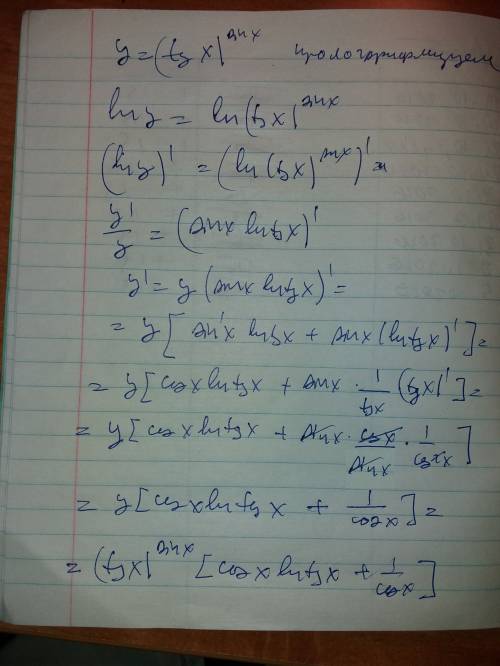 y = (tg x)^sin x прологарифмируем
ln y = ln (tg x)^sin x
(ln y)' = (ln (tg x)^sin x)' =
y'/y = (sin x ln tg x)'
y' = y (sin x ln tg x)' =
= y [sin' x ln tg x + sin x (ln tg x)'] =
= y [cos x ln tg x + sin x · 1/tg x (tg x)'] =
= y [cos x ln tg x + sin x · cos x/sin x · 1/cos² x]
= y [cos x ln tg x + 1/cos x] =
= (tg x)^sin x [cos x ln tg x + 1/cos x]